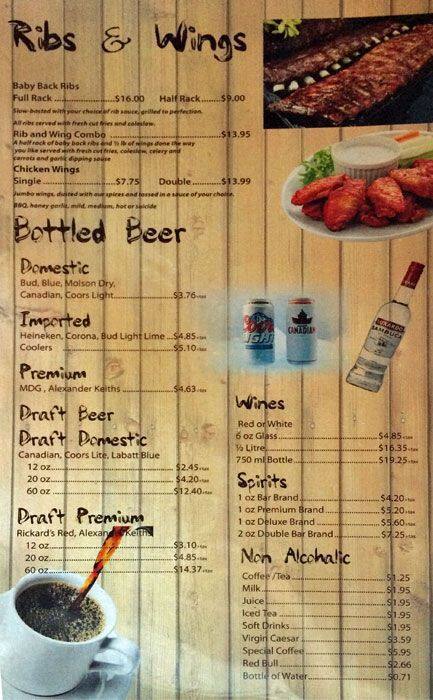 Ribs & Wings
Baby Back Ribs
Full Rack ..................$16.00 Half Rack.......$9.00
Slow-basted with your choice of rib sauce, grilled to perfection.
All ribs served with fresh cut fries and coleslaw.
Rib and Wing Combo ..................$13.95
A half rack of baby back ribs and ½ lb of wings done the way
you like served with fresh cut fries, coleslaw, celery and
carrots and garlic dipping sauce
Chicken Wings
Single ..................$7.75 Double............$13.99
Jumbo wings, dusted with our spices and tossed in a sauce of your choice.
BBQ, honey garlic, mild, medium, hot or suicide
Bottled Beer
Domestic
Bud, Blue, Molson Dry,
Canadian, Coors Light..................$3.76+tax
Imported
Heineken, Corona, Bud Light Lime ...$4.85+tax
Coolers ..................$5.10+tax
Premium
MDG , Alexander Keiths..................$4.63+tax
Draft Beer
Draft Domestic
Canadian, Coors Lite, Labatt Blue
12 oz..................$2.45+tax
20 oz..................$4.20+tax
60 oz..................$12.40+tax
Draft Premium
Rickard's Red, Alexander Keiths
12 oz..................$3.10+tax
20 oz..................$4.85+tax
60 oz..................$14.37+tax
Coors
LIGHT
CANADIAN
SAMBUCA
Wines
Red or White
6 oz Glass..................$4.85+tax
½ Litre..................$16.35+tax
750 ml Bottle..................$19.25+tax
Spirits
1 oz Bar Brand..................$4.20+tax
1 oz Premium Brand..................$5.20+tax
1 oz Deluxe Brand..................$5.60+tax
2 oz Double Bar Brand..................$7.25+tax
Non Alcoholic
Coffee /Tea..................$1.25
Milk..................$1.95
Juice..................$1.95
Iced Tea..................$1.95
Soft Drinks..................$1.95
Virgin Caesar..................$3.59
Special Coffee..................$5.95
Red Bull..................$2.66
Bottle of Water..................$0.71